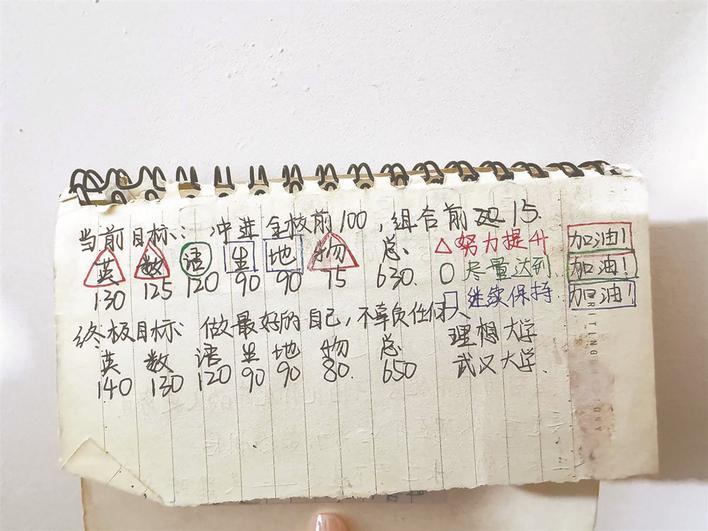 当前目标: 冲进全校前100,组合前15.
英 数 语 生 地 物 总 △努力提升 加油!
130 125 120 90 90 75 630. ○尽量达到 加油!
□继续保持. 加油!
终极目标: 做最好的自己,不辜负任何人
英 数 语 生 地 物 总 理想大学
140 130 120 90 90 80. 650 武汉大学.